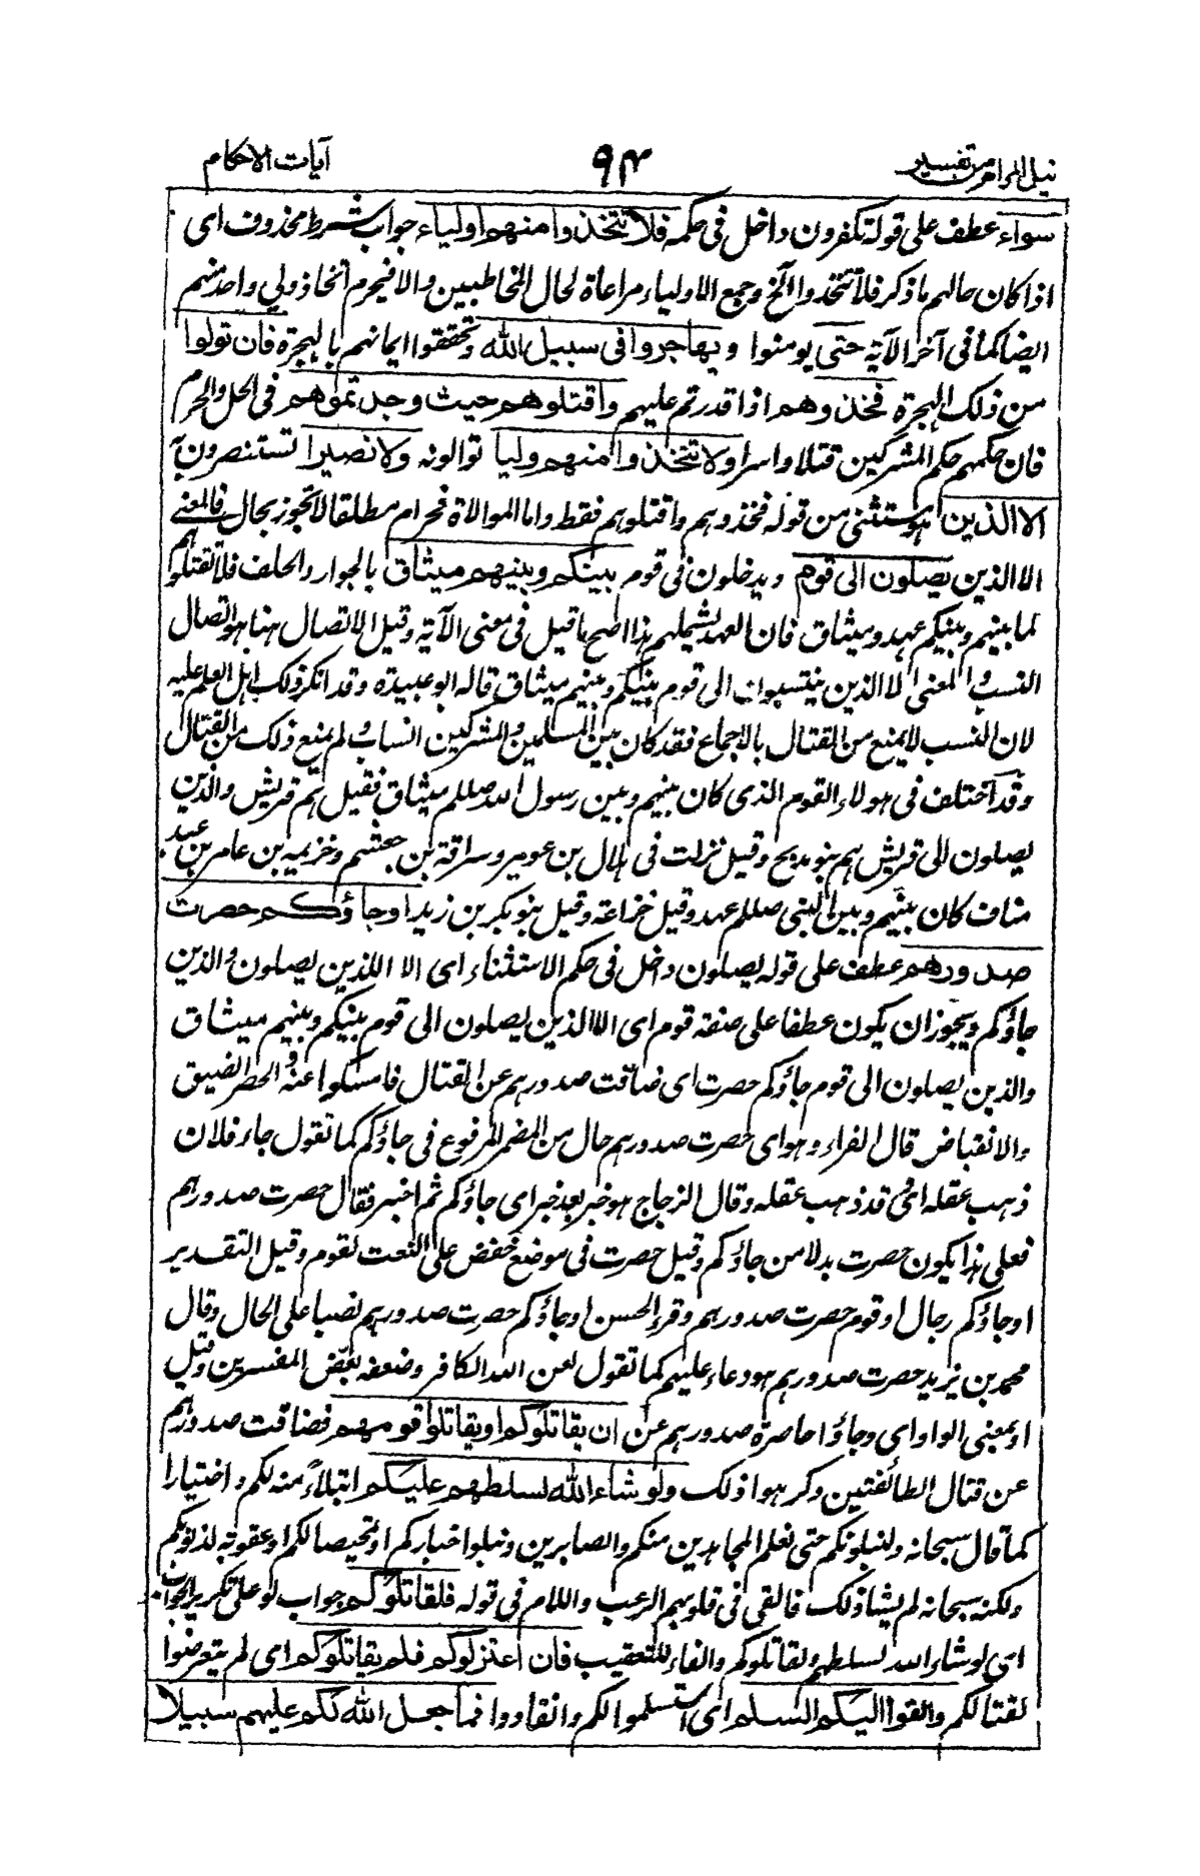 نيل المرام من تفسير ٩٤ آيات الاحكام
سواء عطف على قوله تكفرون داخل فى حكمه فلا تتخذوا منهم اولياء جواب شرط محذوف اى
اذا كان حالهم ما ذكر فلا تتخذوا الخ وجمع الاولياء مراعاة لحال المخاطبين والا فيحرم اتخاذ ولي واحد منهم
ايضا كما فى آخر الآية حتى يومنوا ويهاجروا فى سبيل الله وتحققوا ايمانهم بالهجرة فان تولوا
من ذلك الهجرة فخذوهم اذا قدرتم عليهم واقتلوهم حيث وجدتموهم فى الحل والحرم
فان حكمهم حكم المشركين قتلا واسرا ولا تتخذوا منهم وليا توالونه ولا نصيرا تستنصرون به
الا الذين هو مستثنى من قوله فخذوهم واقتلوهم فقط واما الموالاة فحرام مطلقا لا تجوز بحال فالمعنى
الا الذين يصلون الى قوم ويدخلون فى قوم بينكم وبينهم ميثاق بالجوار والحلف فلا تقتلوهم
لما بينهم وبينكم عهد وميثاق فان العهد يشملهم هذا اصح ما قيل فى معنى الآية وقيل الاتصال هنا هو اتصال
النسب والمعنى الا الذين ينتسبون الى قوم بينكم وبينهم ميثاق قاله ابو عبيدة وقد انكر ذلك اهل العلم عليه
لان النسب لا يمنع من القتال بالاجماع فقد كان بين المسلمين والمشركين انساب ولم يمنع ذلك من القتال
وقد اختلف فى هولاء القوم الذى كان بينهم وبين رسول الله صللم ميثاق فقيل هم قريش والذين
يصلون الى قريش هم بنو مدلج وقيل نزلت فى هلال بن عويمر وسراقة بن جعشم وخزيمه بن عامر بن عبد
مناف كان بينهم وبين النبى صللم عهد وقيل خزاعة وقيل بنو بكر بن زيد او جاؤكم حصرت
صدورهم عطف على قوله يصلون داخل فى حكم الاستثناء اى الا اللذين يصلون والذين
جاؤكم ويجوز ان يكون عطفا على صفة قوم اى الا الذين يصلون الى قوم بينكم وبينهم ميثاق
والذين يصلون الى قوم جاؤكم حصرت اى ضاقت صدورهم عن القتال فامسكوا عنه والحصر الضيق
والانقباض قال الفراء وهو اى حصرت صدورهم حال من المضمر المرفوع فى جاؤكم كما تقول جاء فلان
ذهب عقله اى قد ذهب عقله وقال الزجاج هو خبر بعد خبر اى جاؤكم ثم اخبر فقال حصرت صدورهم
فعلى هذا يكون حصرت بدلا من جاؤكم وقيل حصرت فى موضع خفض على النعت لقوم وقيل التقدير
او جاؤكم رجال او قوم حصرت صدورهم وقرء الحسن او جاؤكم حصرت صدورهم نصبا على الحال وقال
محمد بن يزيد حصرت صدورهم هو دعاء عليهم كما تقول لعن الله الكافر وضعفه بعض المفسرين وقيل
او بمعنى الواو اى وجاؤا حاصرة صدورهم عن ان يقاتلوكم او يقاتلوا قومهم فضاقت صدورهم
عن قتال الطائفتين وكرهوا ذلك ولو شاء الله لسلطهم عليكم ابتلاء منه لكم واختيارا
كما قال سبحانه ولنبلونكم حتى نعلم المجاهدين منكم والصابرين ونبلوا اخباركم او تمحيصا لكم او عقوبة لذنوبكم
ولكنه سبحانه لم يشا ذلك فالقى فى قلوبهم الرعب واللام فى قوله فلقاتلوكم جواب لو على تكرير الجواب
اى لو شاء الله لسلطهم ولقاتلوكم والفاء للتعقيب فان اعتزلوكم فلم يقاتلوكم اى لم يتعرضوا
لقتالكم والقوا اليكم السلم اى استسلموا لكم وانقادوا فما جعل الله لكم عليهم سبيلا